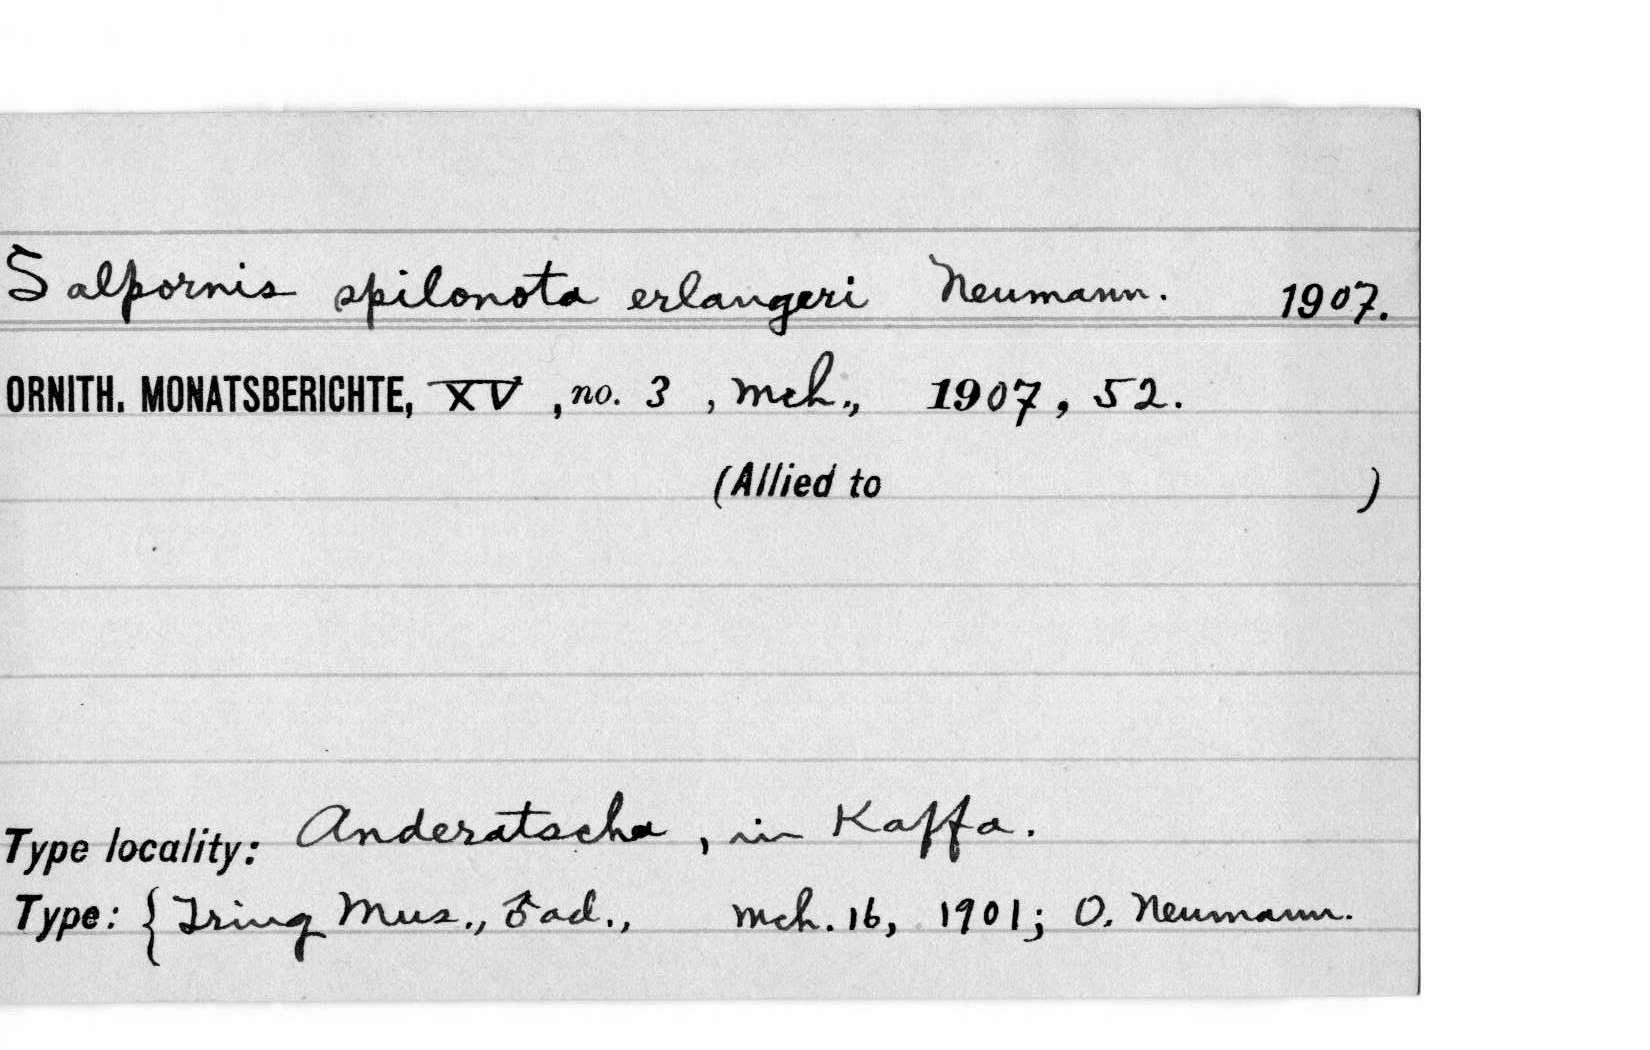 Salpornis spilonota erlangeri Neumann. 1907.
ORNITH. MONATSBERICHTE, XV, no. 3, Mch., 1907, 52.
(Allied to )
Type locality: Anderatscha, in Kaffa.
Type: {Tring Mus., ♂ad., Mch. 16, 1901; O. Neumann.